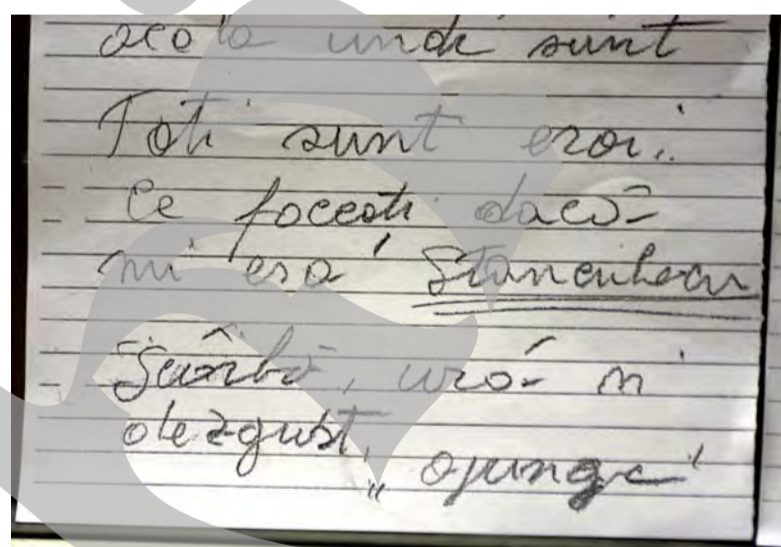 acolo unde sunt
Toti sunt eroi..
- Ce faceati dacă-
mi era' Stanculescu
- Scârbă, ură și
dezgust
„ajunge"